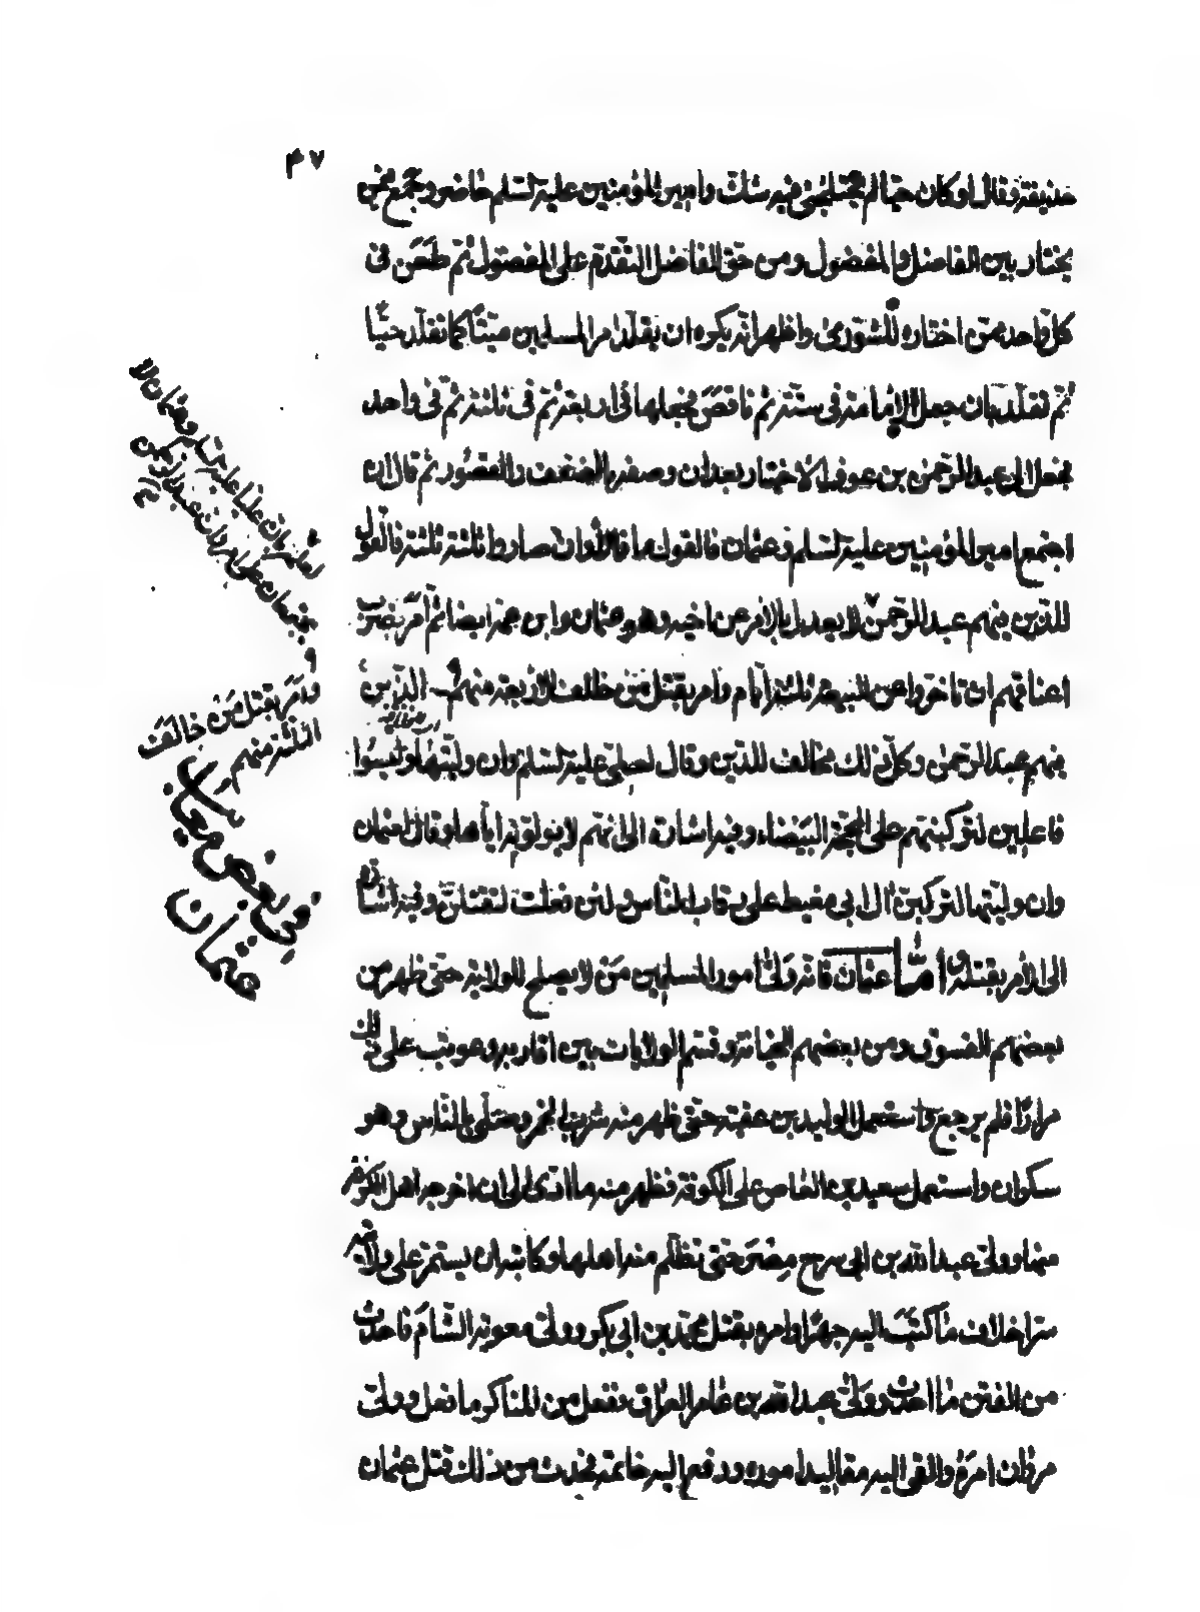 ٤٧
حذيفة وقال لو كان حيا لم يختلجنى فيه شك وامير المؤمنين عليه السلم حاضر وجمع فيمن
يختار بين الفاضل والمفضول ومن حق الفاضل التقدم على المفضول ثم طعن فى
كل واحد ممن اختاره للشورى واظهر انه يكره ان يقلد امر المسلمين ميتا كما تقلده حيا
ثم تقلده بان جعل الامامة فى ستة ثم ناقض فجعلها فى اربعة ثم فى ثلثة ثم فى واحد
فجعل الى عبد الرحمن بن عوف الاختيار بعد ان وصفه بالضعف والقصور ثم قال ان
اجتمع امير المؤمنين عليه السلم وعثمان فالقول ما قالاه وان صاروا ثلثة ثلثة فالقول
للذين منهم عبد الرحمن لا يعدل بالامر عن اخيه وهو عثمان وابن عمه ايضا ثم امر بضرب
اعناقهم ان تاخروا عن البيعة ثلثة ايام وامر بقتل من خالف الاربعة منهم الذين
منهم عبد الرحمن وكل ذلك مخالف للدين وقال لعلي عليه السلم وان وليتها وليسوا
فاعلين لتركبنهم على المحجة البيضاء وفيه اشارة الى انهم لا يولونه اياها وقال لعثمان
وان وليتها لتركبن آل ابى معيط على رقاب الناس ولئن فعلت لتقتلن وفيه اشارة
الى الامر بقتله واما عثمان فانه ولى امور المسلمين من لا يصلح للولاية حتى ظهر من
بعضهم الفسوق ومن بعضهم الخيانة وقسم الولايات بين اقاربه وعوتب على ذلك
مرارا فلم يرجع واستعمل الوليد بن عقبة حتى ظهر منه شرب الخمر وصلى بالناس وهو
سكران واستعمل سعيد بن العاص على الكوفة فظهر منه ما ادى الى ان اخرجه اهل الكوفة
منها وولى عبد الله بن ابى سرح مصر حتى تظلم منه اهلها وكاتبه ان يستمر على ولايته
سرا خلاف ما كتب اليه جهرا وامره بقتل محمد بن ابى بكر وولى معوية الشام فاحدث
من الفتن ما احدث وولى عبد الله بن عامر العراق ففعل من المناكر ما فعل وولى
مروان امره والقى اليه مقاليد اموره ودفع اليه خاتمه فحدث من ذلك قتل عثمان
لعلمه بان عليا عليه السلم وعثمان لا
يجتمعان على امر وان عبد الرحمن
وامر بقتل من خالف
الثلثة منهم
فى بعض معايب
عثمان